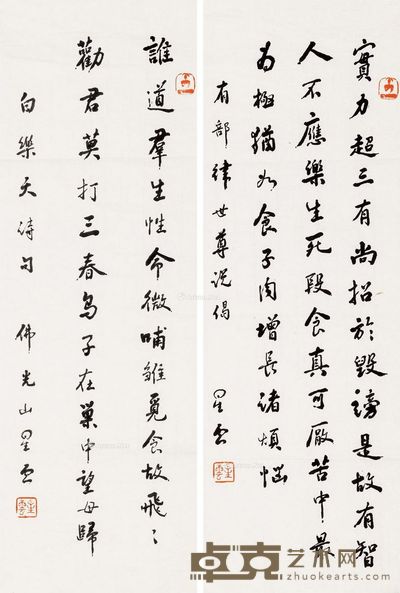 實力超三有尚招於毀謗是故有智
人不應樂生死段食真可厭苦中最
為極猶如食子肉增長諸煩惱
有部律世尊說偈
星雲
誰道羣生性命微哺雛覓食故飛〻
勸君莫打三春鳥子在巢中望母歸
白樂天詩句 佛光山星雲
卓克艺术网
zhuokearts.com